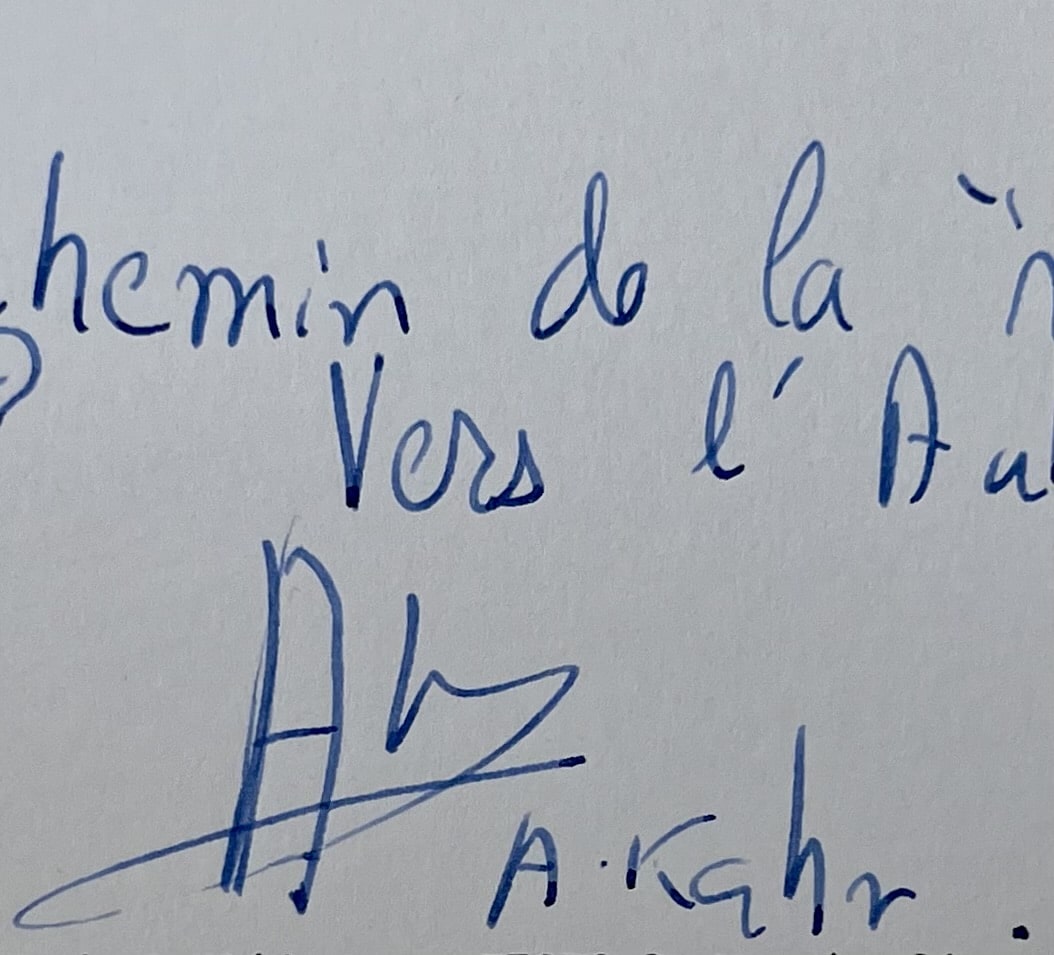 chemin de la
Vers l'Au
A. Kahr.